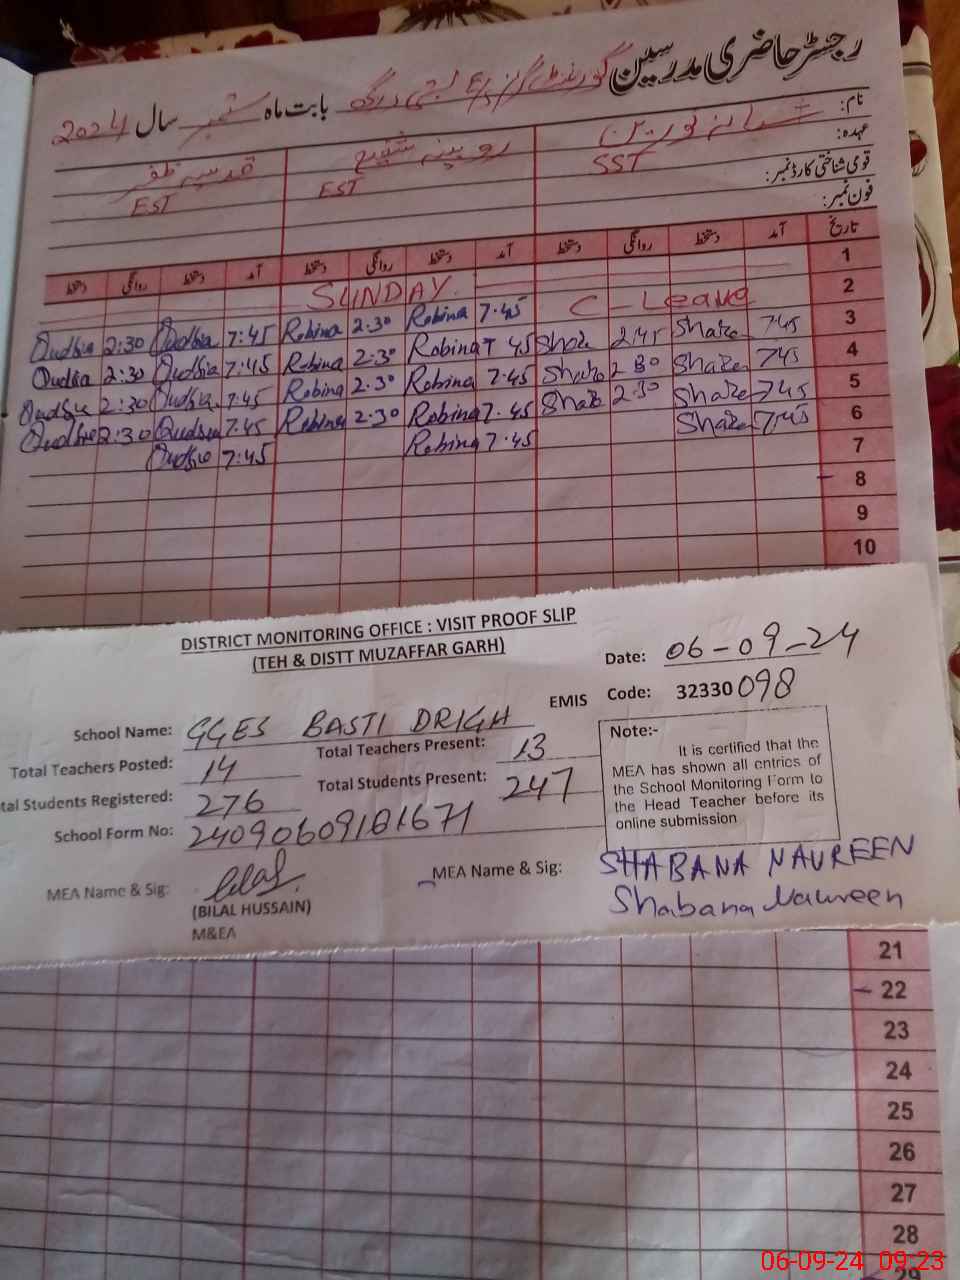 رجسٹر حاضری مدرسین گورنمنٹ گرلز بستی درگھ بابت ماہ ستمبر سال 2024
نام: شبانہ نورین روبینہ شفیع قدسیہ ظفر
عہدہ: SST EST EST
قومی شناختی کارڈ نمبر:
فون نمبر:
تاریخ آمد دستخط روانگی دستخط آمد دستخط روانگی دستخط آمد دستخط روانگی دستخط
1 SUNDAY
2 C-Leave
Qudsia 2:30 Qudsia 7:45 Robina 2:30 Robina 7.45 3
Qudsia 2:30 Qudsia 7:45 Robina 2.30 Robina 7 45 2.45 745 4
Qudsia 2:30 Qudsia 7.45 Robina 2.30 Robina 7.45 2 30 745 5
Qudsia 2:30 Qudsia 7.45 Robina 2.30 Robina 7.45 2.30 745 6
Qudsia 7:45 Robina 7.45 7.45 7
8
9
10
DISTRICT MONITORING OFFICE : VISIT PROOF SLIP
(TEH & DISTT MUZAFFAR GARH)
Date: 06-09-24
EMIS Code: 32330098
School Name: GGES BASTI DRIGH
Total Teachers Posted: 14 Total Teachers Present: 13
tal Students Registered: 276 Total Students Present: 247
School Form No: 24090609181671
Note:-
It is certified that the
MEA has shown all entries of
the School Monitoring Form to
the Head Teacher before its
online submission
MEA Name & Sig: Bilal
(BILAL HUSSAIN)
M&EA
MEA Name & Sig: SHABANA NAUREEN
Shabana Naureen
21
22
23
24
25
26
27
28
29
06-09-24 09:23